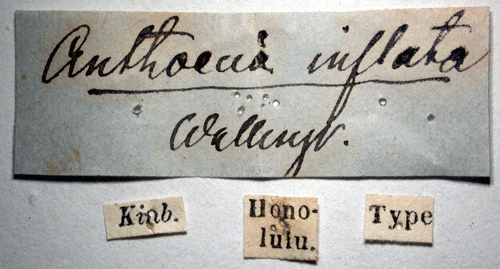 Anthoecia inflata
Wallengr.
Kinb.
Hono-
lulu.
Type